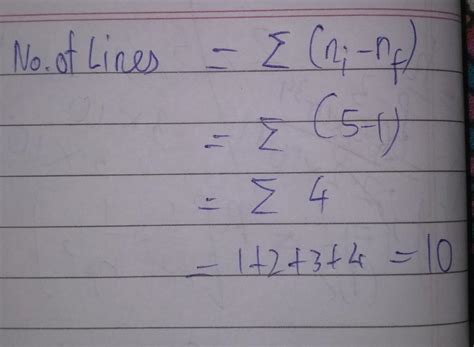 No. of Lines = Σ (nᵢ - n_f)
= Σ (5-1)
= Σ 4
= 1+2+3+4 = 10